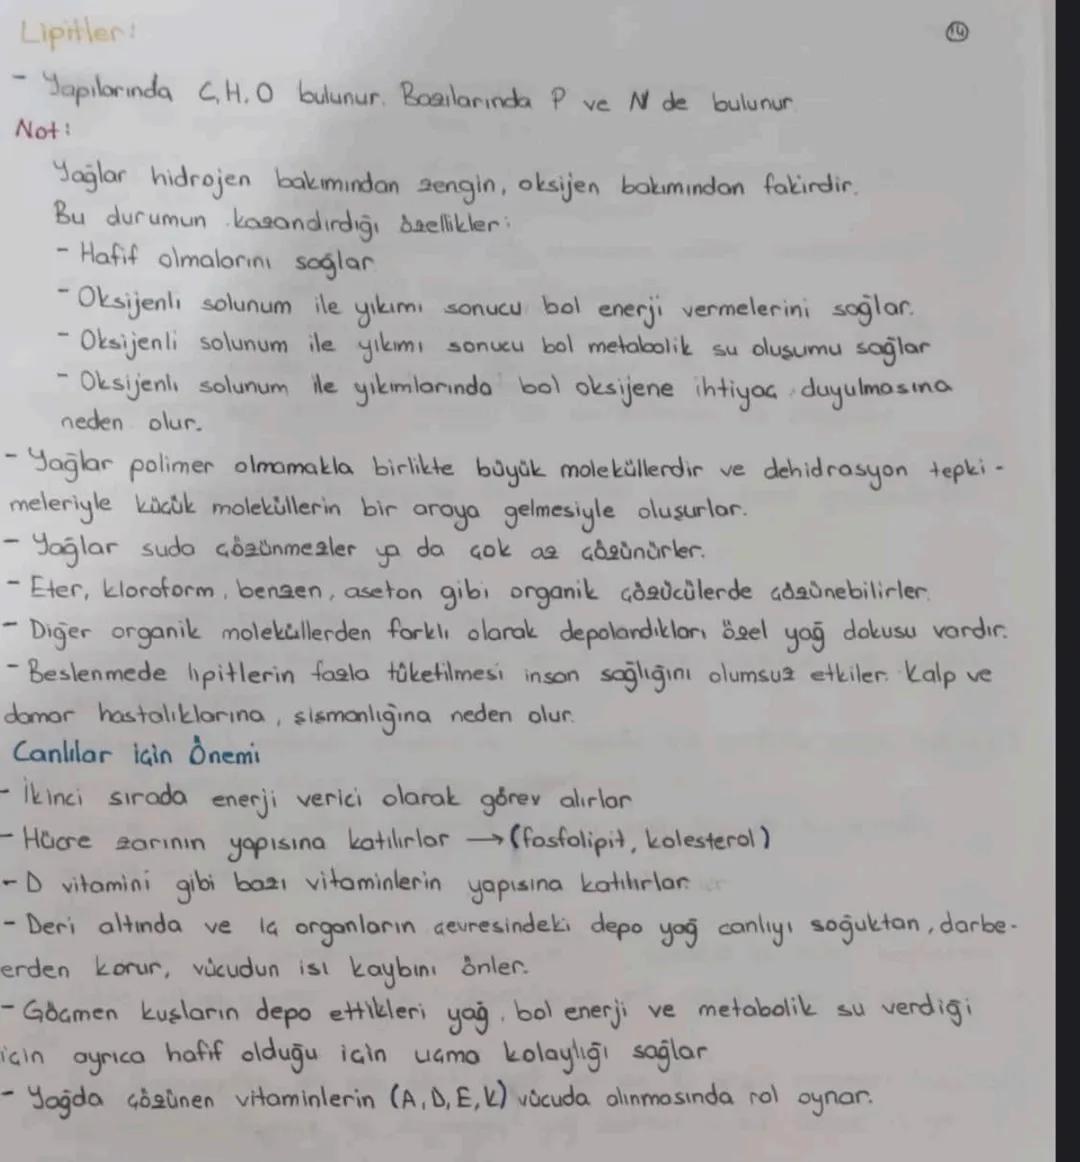 Lipitler:
14
- Yapılarında C, H, O bulunur. Bazılarında P ve N de bulunur
Not:
Yağlar hidrojen bakımından zengin, oksijen bakımından fakirdir.
Bu durumun kazandırdığı özellikler:
- Hafif olmalarını sağlar
- Oksijenli solunum ile yıkımı sonucu bol enerji vermelerini sağlar.
- Oksijenli solunum ile yıkımı sonucu bol metabolik su oluşumu sağlar
- Oksijenli solunum ile yıkımlarında bol oksijene ihtiyaç duyulmasına
neden olur.
- Yağlar polimer olmamakla birlikte büyük moleküllerdir ve dehidrasyon tepki-
meleriyle küçük moleküllerin bir araya gelmesiyle oluşurlar.
- Yağlar suda çözünmezler ya da çok az çözünürler.
- Eter, kloroform, benzen, aseton gibi organik çözücülerde çözünebilirler.
- Diğer organik moleküllerden farklı olarak depolandıkları özel yağ dokusu vardır.
- Beslenmede lipitlerin fazla tüketilmesi insan sağlığını olumsuz etkiler. Kalp ve
damar hastalıklarına, şişmanlığına neden olur.
Canlılar için Önemi
- İkinci sırada enerji verici olarak görev alırlar
- Hücre zarının yapısına katılırlar → (fosfolipit, kolesterol)
- D vitamini gibi bazı vitaminlerin yapısına katılırlar
- Deri altında ve iç organların çevresindeki depo yağ canlıyı soğuktan, darbe-
erden korur, vücudun ısı kaybını önler.
- Göçmen kuşların depo ettikleri yağ, bol enerji ve metabolik su verdiği
için ayrıca hafif olduğu için uçma kolaylığı sağlar
- Yağda çözünen vitaminlerin (A, D, E, K) vücuda alınmasında rol oynar.